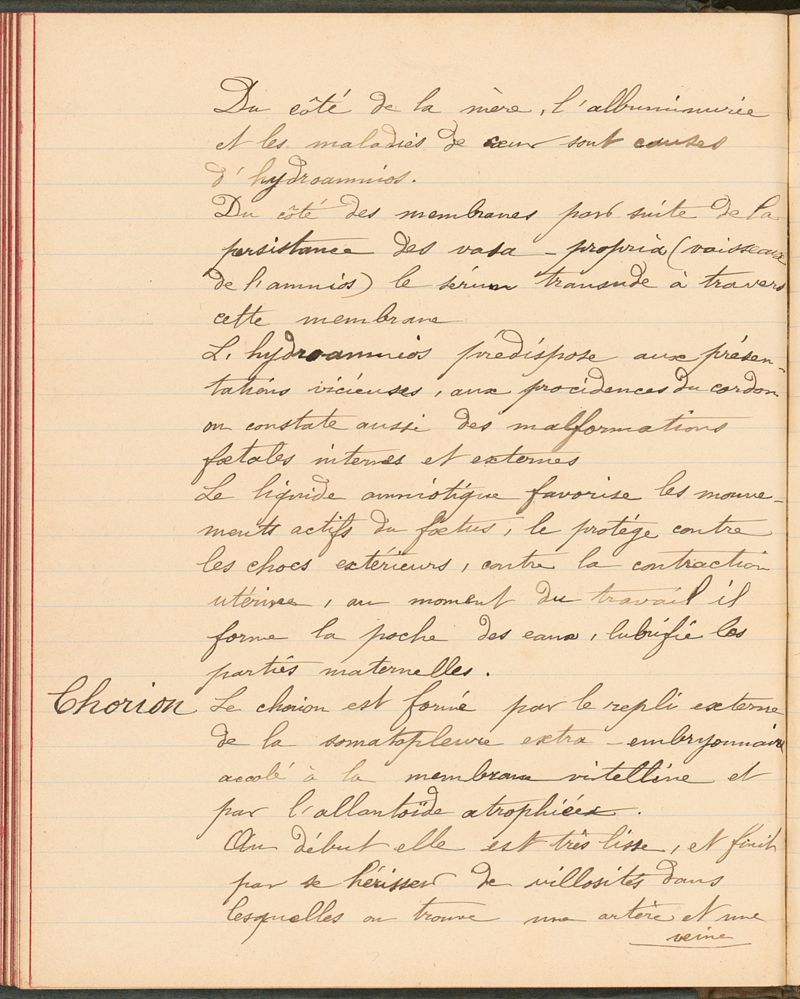 Du côté de la mère, l'albuminurie
et les maladies de cœur sont causes
d'hydroamnios.
Du côté des membranes par suite de la
persistance des vasa-propria (vaisseaux
de l'amnios) le sérum transude à travers
cette membrane
L'hydroamnios prédispose aux présen-
tations vicieuses, aux procidences du cordon
on constate aussi des malformations
fœtales internes et externes
Le liquide amniotique favorise les mouve-
ments actifs du fœtus, le protége contre
les chocs extérieurs, contre la contraction
utérine, au moment du travail il
forme la poche des eaux, lubrifie les
parties maternelles.
Chorion Le chorion est formé par le repli externe
de la somatopleure extra-embryonnaire
accolé à la membrane vitelline et
par l'allantoïde atrophiée.
Au début elle est très lisse, et finit
par se hérisser de villosités dans
lesquelles on trouve une artère et une
veine